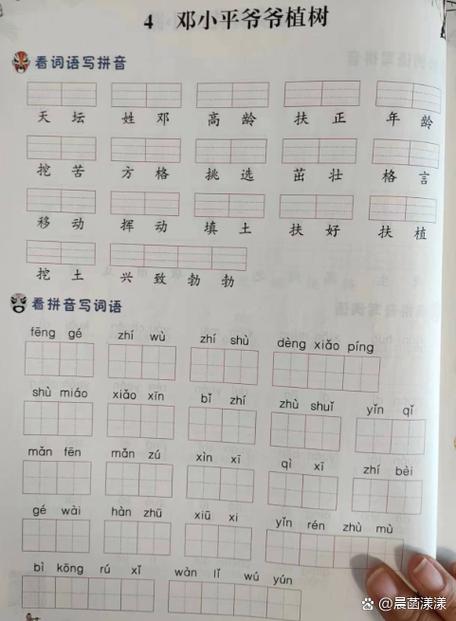 4 邓小平爷爷植树
看词语写拼音
天坛 姓邓 高龄 扶正 年龄
挖苦 方格 挑选 茁壮 格言
移动 挥动 填土 扶好 扶植
挖土 兴致勃勃
看拼音写词语
fēng gé zhí wù zhí shù dèng xiǎo píng
shù miáo xiǎo xīn bǐ zhí zhù shuǐ yǐn qǐ
mǎn fēn mǎn zú xìn xī qì xī zhí bèi
gé wài hàn zhū xiū xi yǐn rén zhù mù
bì kōng rú xǐ wàn lǐ wú yún
晨菡漾漾